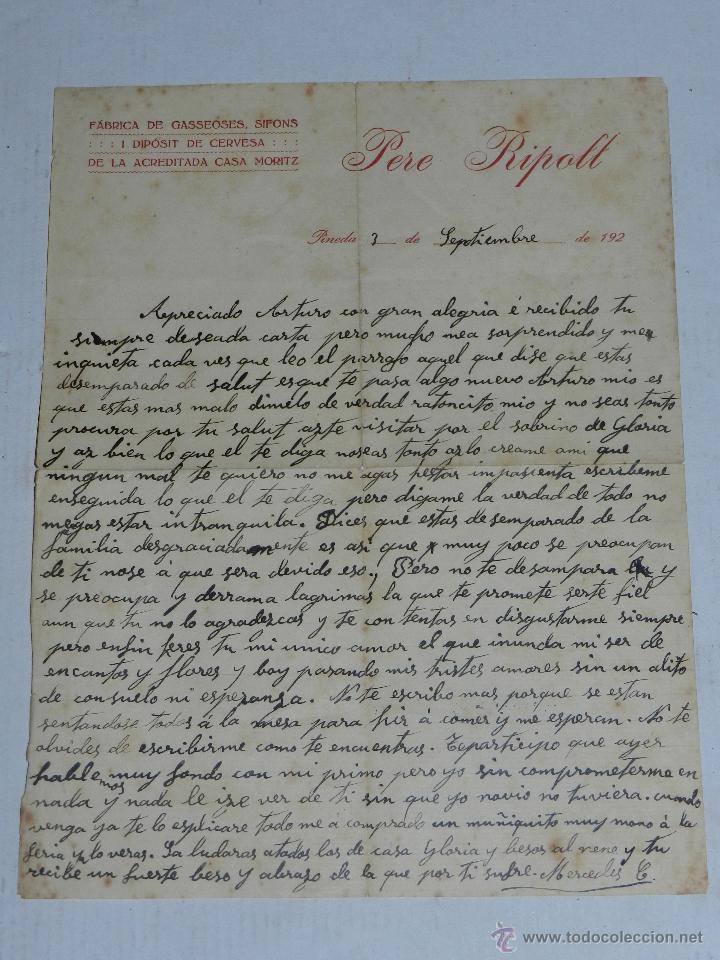 FÁBRICA DE GASSEOSES, SIFONS
: : : I DIPÓSIT DE CERVESA : : :
DE LA ACREDITADA CASA MORITZ
Pere Ripoll
Pineda 3 de Septiembre de 192
Apreciado Arturo con gran alegria é recibido tu
siempre deseada carta pero mucho mea sorprendido y me
inquieta cada ves que leo el parrafo aquel que dise que estas
desemparado de salut es que te pasa algo nuevo Arturo mio es
que estas mas malo dimelo de verdad ratoncito mio y no seas tonto
procura por tu salut azte visitar por el sobrino de Gloria
y az bien lo que el te diga noseas tonto azlo creame ami que
ningun mal te quiero no me agas pestar impasienta escribeme
enseguida lo que el te diga pero digame la verdad de todo no
megas estar intranquila. Dices que estas desemparado de la
familia desgraciadamente es asi que muy poco se preocupan
de ti nose á que sera devido eso., Pero no te desampara y
se preocupa y derrama lagrimas la que te promete serte fiel
aun que tu no lo agradezcas y te contentas en disgustarme siempre
pero enfin eres tu mi unico amor el que inunda mi ser de
encantos y flores y boy pasando mis tristes amores sin un alito
de consuelo ni esperansa. No te escribo mas porque se estan
sentandose todos á la mesa para hir á comer y me esperan. No te
olvides de escribirme como te encuentras. Teparticipo que ayer
hablemos muy fondo con mi primo pero yo sin comprometerme en
nada y nada le ize ver de ti sin que yo novio no tuviera. cuando
venga ya te lo esplicare todo me á comprado un muñiquito muy mono á la
feria ya lo veras. Saludaras atodos los de casa Gloria y besos al nene y tu
recibe un fuerte beso y abrazo de la que por ti sufre. Mercedes C.
todocoleccion.net